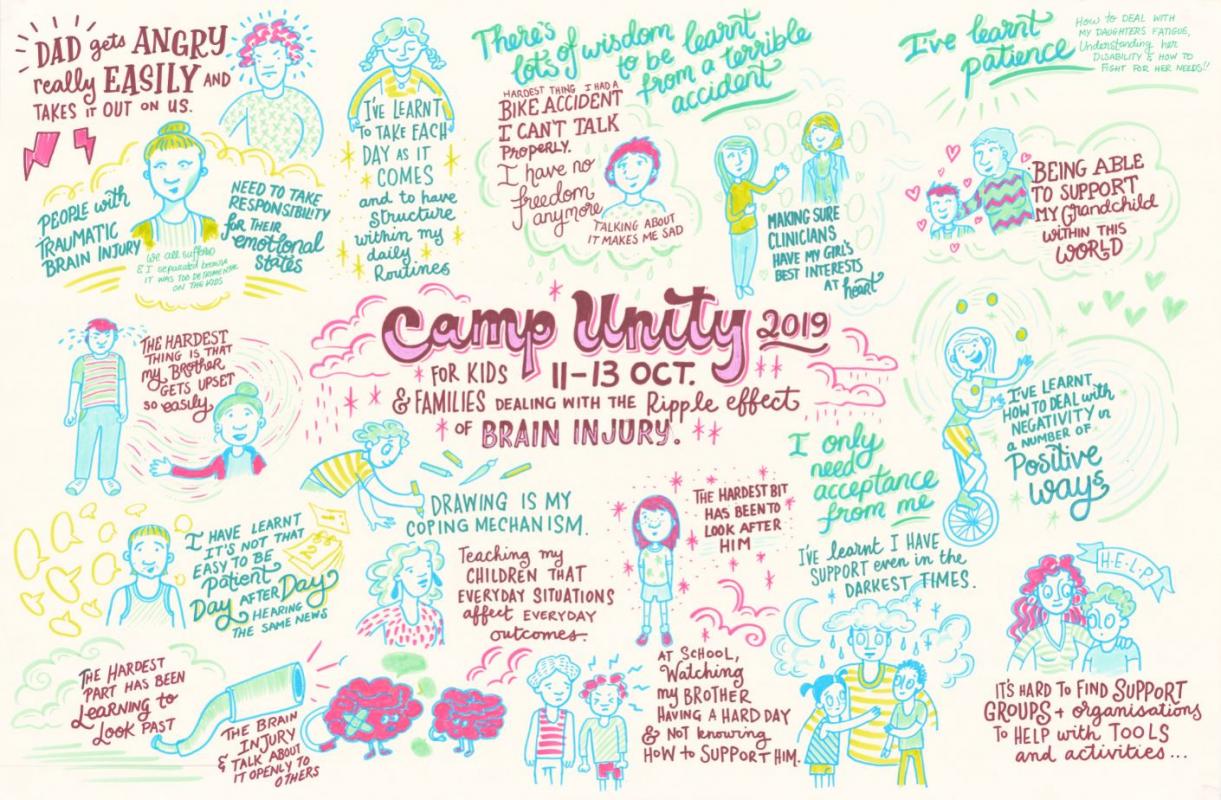 DAD gets ANGRY
really EASILY AND
TAKES IT OUT ON US.
PEOPLE with
TRAUMATIC
BRAIN INJURY
NEED TO TAKE
RESPONSIBILITY
for THEIR
emotional
states
we all suffered
& I separated because
IT WAS TOO DETRIMENTAL
ON THE KIDS
I'VE LEARNT
To TAKE EACH
DAY AS IT
COMES
and to have
Structure
within my
daily
Routines
There's
lots of wisdom
to be learnt
from a terrible
accident
HARDEST THING I HAD A
BIKE ACCIDENT
I CAN'T TALK
Properly.
I have no
freedom
anymore
TALKING ABOUT
IT MAKES ME SAD
MAKING SURE
CLINICIANS
HAVE MY GIRL'S
BEST INTERESTS
AT heart
I've learnt
patience
How to DEAL WITH
MY DAUGHTERS FATIGUE,
Understanding her
DISABILITY & HOW TO
FIGHT FOR HER NEEDS!!
BEING ABLE
TO SUPPORT
MY Grandchild
WITHIN THIS
WORLD
Camp Unity 2019
FOR KIDS 11-13 OCT.
& FAMILIES DEALING WITH THE Ripple effect
OF BRAIN INJURY.
THE HARDEST
THING IS THAT
my Brother
GETS UPSET
so easily
I'VE LEARNT
HOW TO DEAL with
NEGATIVITY in
a NUMBER OF
Positive
ways
I only
need
acceptance
from me
DRAWING IS MY
COPING MECHANISM.
THE HARDEST BIT
HAS BEEN TO
LOOK AFTER
HIM
I HAVE LEARNT
IT'S NOT THAT
EASY TO BE
Patient
Day AFTER Day
HEARING
THE SAME NEWS
Teaching my
CHILDREN THAT
EVERYDAY SITUATIONS
affect EVERYDAY
outcomes
I'VE learnt I HAVE
SUPPORT even in the
DARKEST TIMES.
HELP
THE HARDEST
PART HAS BEEN
Learning to
Look PAST
THE BRAIN
INJURY
& TALK ABOUT
IT OPENLY TO
OTHERS
AT SCHOOL,
Watching
my BROTHER
HAVING A HARD DAY
& NOT knowing
HOW TO SUPPORT HIM.
IT'S HARD TO FIND SUPPORT
GROUPS + organisations
To HELP with TOOLS
and activities...